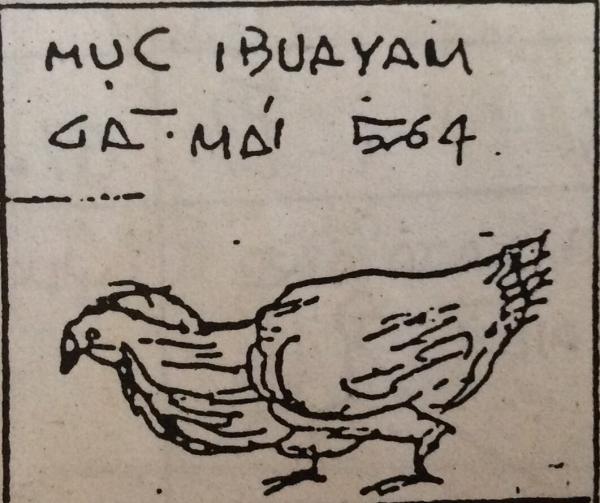 MỤC IBUAYAM
GÀ MÁI 564